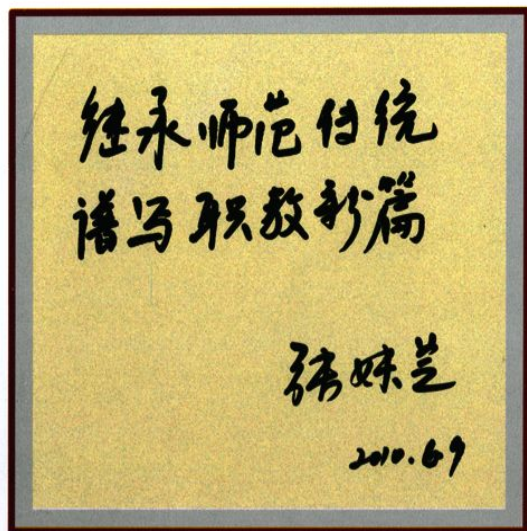 继承师范传统
谱写职教新篇
张妹芝
2010.6.9